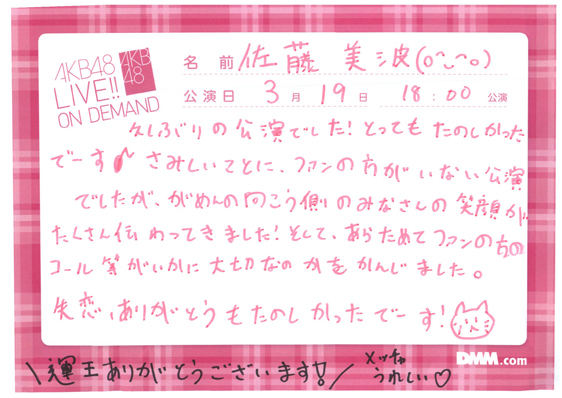 AKB48
LIVE!!
ON DEMAND
AKB
48
名前 佐藤美波(o^-^o)
公演日 3月19日 18:00 公演
久しぶりの公演でした!とってもたのしかった
でーす♪さみしいことに、ファンの方がいない公演
でしたが、がめんの向こう側のみなさんの笑顔が
たくさん伝わってきました!そして、あらためてファンの方の
コール等がいかに大切なのかをかんじました。
失恋、ありがとうもたのしかったでーす!
DMM.com
\輝王ありがとうございます!!/ メッチャ
うれしい♡